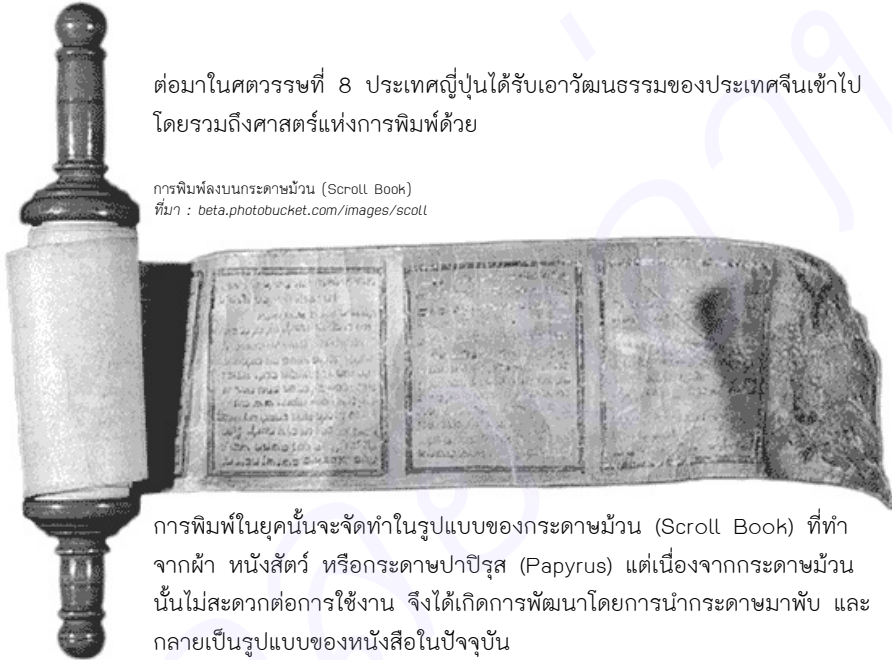 ต่อมาในศตวรรษที่ 8 ประเทศญี่ปุ่นได้รับเอาวัฒนธรรมของประเทศจีนเข้าไป
โดยรวมถึงศาสตร์แห่งการพิมพ์ด้วย
การพิมพ์ลงบนกระดาษม้วน (Scroll Book)
ที่มา : beta.photobucket.com/images/scoll
การพิมพ์ในยุคนั้นจะจัดทำในรูปแบบของกระดาษม้วน (Scroll Book) ที่ทำ
จากผ้า หนังสัตว์ หรือกระดาษปาปิรุส (Papyrus) แต่เนื่องจากกระดาษม้วน
นั้นไม่สะดวกต่อการใช้งาน จึงได้เกิดการพัฒนาโดยการนำกระดาษมาพับ และ
กลายเป็นรูปแบบของหนังสือในปัจจุบัน